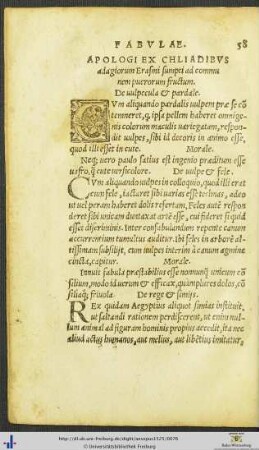 FABVLAE. 58
APOLOGI EX CHLIADIBVS
adagiorum Erasmi sumpti ad commu
nem puerorum fructum.
De uulpecula & pardale.
CVm aliquando pardalis uulpem prae se cõ
temneret, q, ipsa pellem haberet omnige-
nis colorum maculis uariegatam, respon-
dit uulpes, sibi id decoris in animo esse,
quod illi esset in cute. Morale.
Neq; uero paulo satius est ingenio praeditum esse
uafro, q̃ cute uersicolore. De uulpe & fele.
CVm aliquando uulpes in colloquio, quod illi erat
cum fele, iactaret sibi uarias esse technas, adeo
ut uel peram haberet dolis refertam, Feles autẽ respon
deret sibi unicam duntaxat artẽ esse, cui fideret si quid
esset discriminis. Inter confabulandum repente canum
accurrentium tumultus auditur. ibi feles in arborẽ al-
tissimam subsilijt, cum uulpes interim à canum agmine
cincta, capitur. Morale.
Innuit fabula praestabilius esse nonnunq̃ unicum cõ
silium, modo id uerum & efficax, quàm plures dolos, cõ
siliaq; friuola. De rege & simijs.
REx quidam Aegyptius aliquot simias instituit,
ut saltandi rationem perdiscerent, ut enim nul-
lum animal ad figuram hominis propius accedit, ita nec
aliud actus humanos, aut melius, aut libẽtius imitatur,
http://dl.ub.uni-freiburg.de/diglit/aesopus1521/0076
© Universitätsbibliothek Freiburg